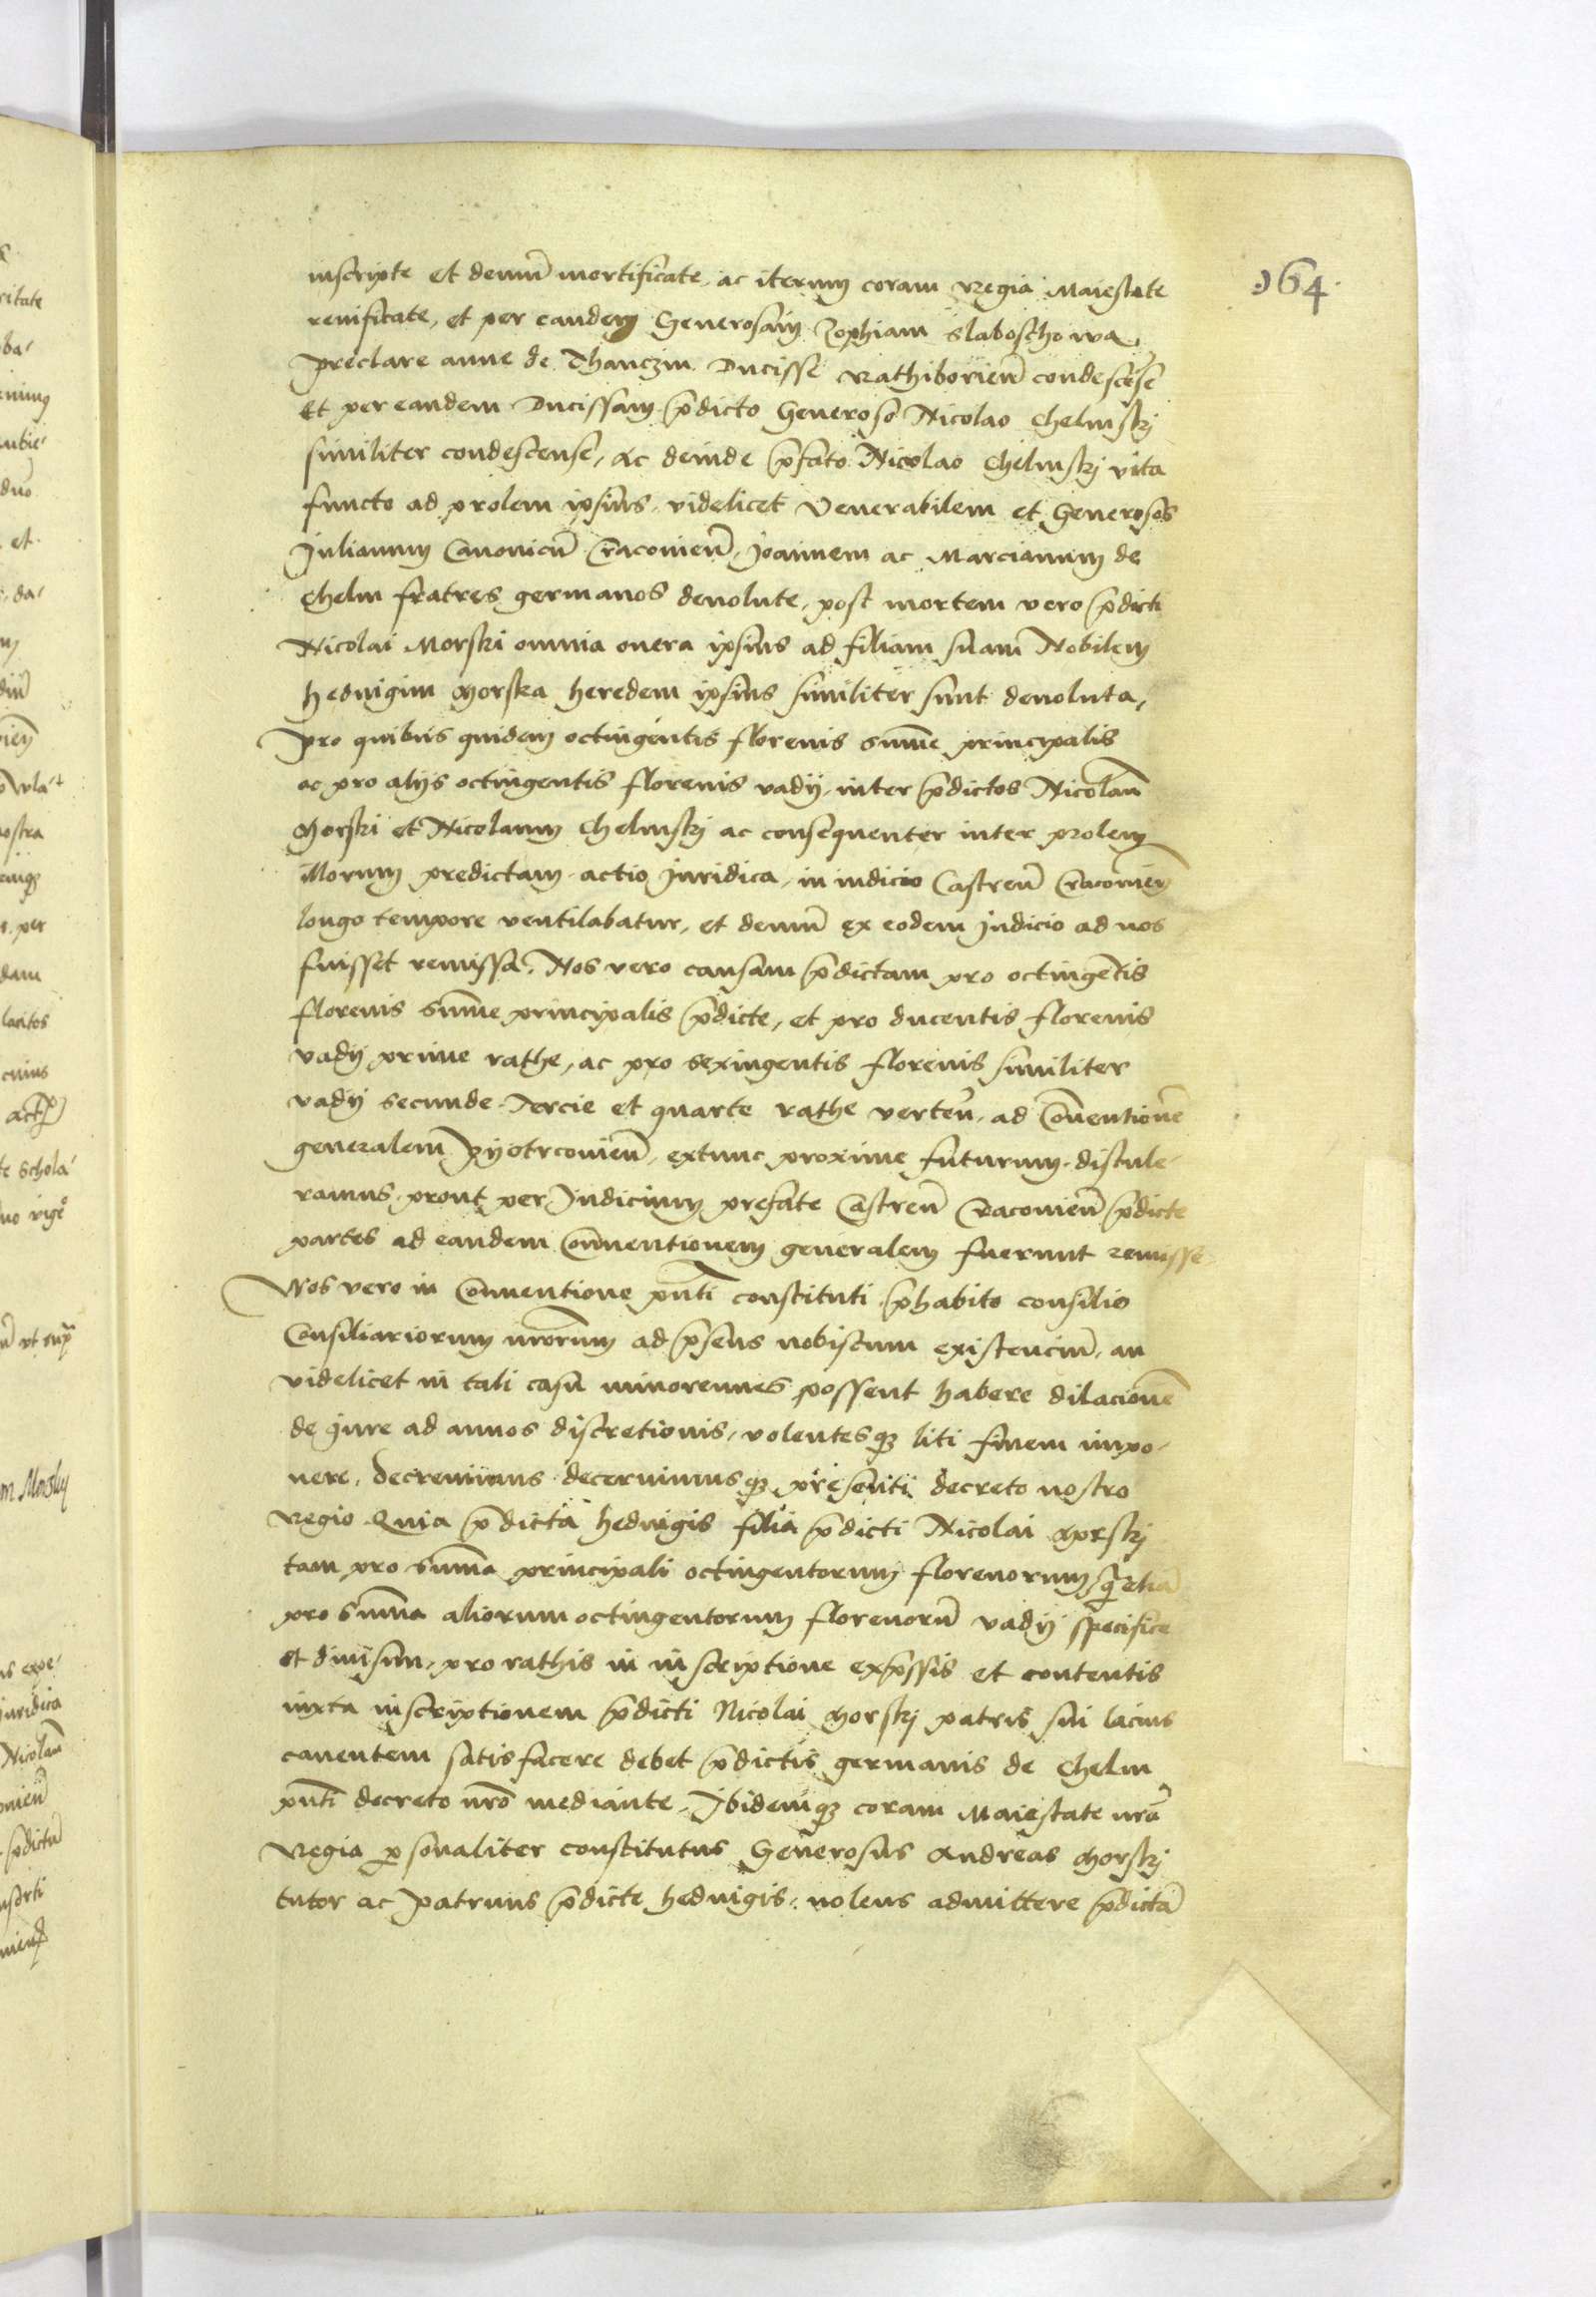 164.
inscripte et demū mortificate, ac iterum coram Regia Maiestate
reuificate, et per eandem Generosam Zophiam Slaboschowa
preclare anne de Thanczin Ducisse Rathiborieñ condesceñse
Et per eandem Ducissam p̄dicto Generoso Nicolao Chelmskj
similiter condescense, ac deinde p̄fato Nicolao Chelmskj vita
functo ad prolem ipsius, videlicet Venerabilem et Generosos
Julianum Canonicū Cracouieñ, Joannem ac Marcianum de
Chelm fratres germanos deuolute, post mortem vero p̄dicti
Nicolai Morski omnia onera ipsius ad filiam suam Nobilem
Heduigim Morska heredem ipsius similiter sunt deuoluta,
Pro quibus quidem octingentis florenis sum̄e principalis
ac pro alijs octingentis florenis vadij, inter p̄dictos Nicolaū
Morski et Nicolaum Chelmskj ac consequenter inter prolem
illorum predictam actio juridica, in iudicio Castreñ Cracouieñ
longo tempore ventilabatur, et demū ex eodem Judicio ad nos
fuisset remissa. Nos vero causam p̄dictam pro octingētis
florenis sum̄e principalis p̄dicte, et pro ducentis florenis
vadij prime rathe, ac pro sexingentis florenis similiter
vadij secunde Tercie et quarte rathe verteñ, ad Conuentionē
generalem Pyotrcouieñ, extunc proxime futurum distule-
ramus, prout per Judicium prefate Castreñ Cracouieñ p̄dicte
partes ad eandem Conuentionem generalem fuerunt remisse
Nos vero in Conuentione pn̄ti constituti p̄habito consilio
Consiliariorum nr̄orum ad p̄sens nobiscum existenciū, an
videlicet in tali casu minorennes possent habere dilacionē
de jure ad annos discretionis, volentesqȝ liti finem impo-
nere, decreuimus decernimusqȝ presenti decreto nostro
Regio Quia p̄dicta Heduigis filia p̄dicti Nicolai Morskj
tam pro sum̄a principali octingentorum florenorum q̄ etiā
pro sum̄a aliorum octingentorum florenorū vadij specifice
et diuisim, pro rathis in inscriptione exp̄ssis et contentis
iuxta inscriptionem p̄dicti Nicolai Morskj patris sui lacius
canentem satisfacere debet p̄dictis germanis de Chelm
pn̄ti decreto nr̄o mediante, Ibidemqȝ coram Maiestate nr̄a
Regia p̱sonaliter constitutus Generosus Andreas Morskj
tutor ac Patruus p̄dicte Heduigis, nolens admittere p̄dictā